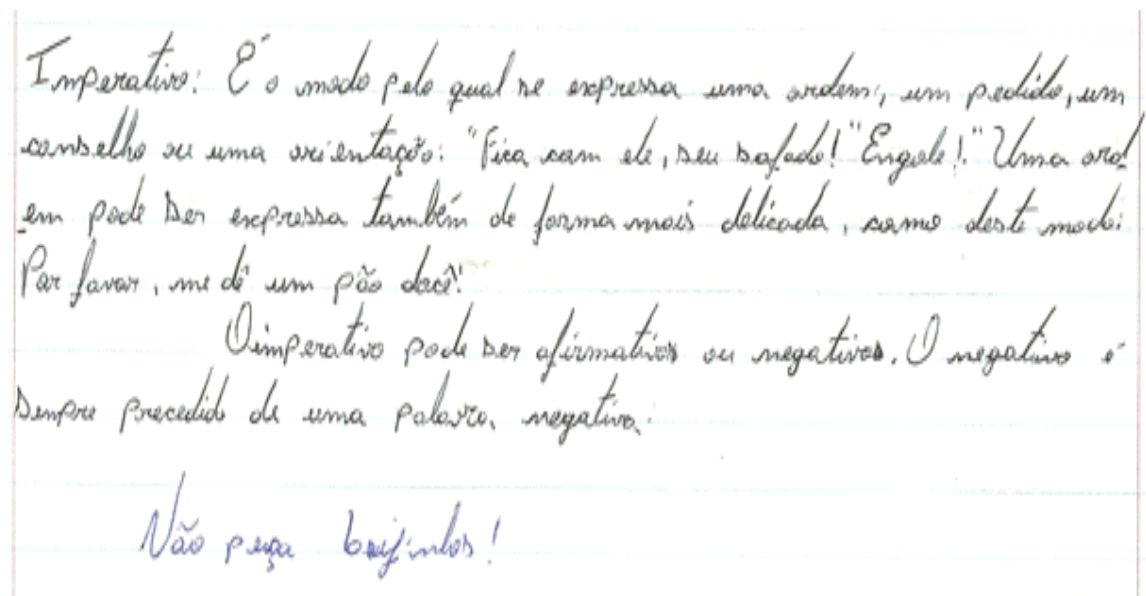 Imperativo: É o modo pelo qual se expressa uma ordem, um pedido, um
conselho ou uma orientação: "Fica com ele, seu safado!" "Engole!." Uma ord
em pode ser expressa também de forma mais delicada, como deste modo:
Por favor, me dê um pão docê!
O imperativo pode ser afirmativos ou negativos. O negativo é
sempre precedido de uma palavra, negativa:
Não peça beijinhos!